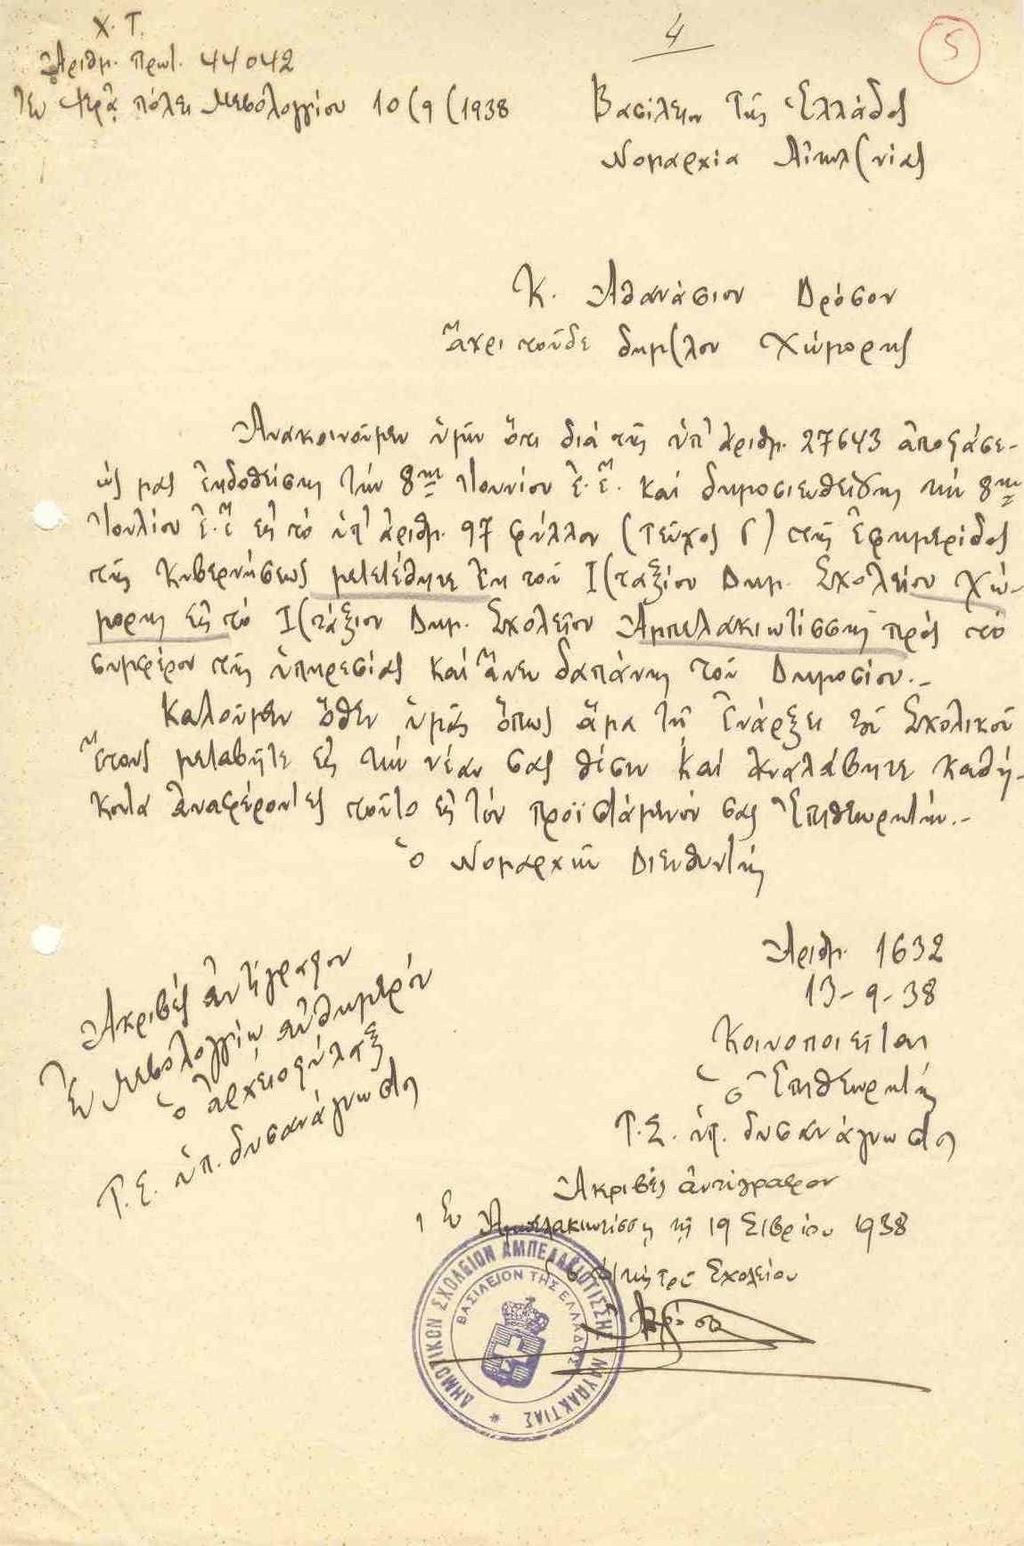 Χ. Τ.
Ἀριθμ. Πρωτ. 44042
Ἐν Ἱερᾷ πόλει Μεσολογγίου 10(9(1938
4
5
Βασίλειον Τῆς Ἑλλάδος
Νομαρχία Αἰτωλ(νίας
Κ. Ἀθανάσιον Δρόσον
ἄχρι τοῦδε δημ(λον Χώμορης
Ἀνακοινοῦμεν ὑμῖν ὅτι διά τῆς ὑπ' ἀριθμ. 27643 ἀποφάσε-
ώς μας ἐκδοθείσης τήν 8ην Ἰουνίου ἐ.ἔ. καί δημοσιευθείσης τήν 8ην
Ἰουλίου ἐ.ἔ εἰς τό ὑπ' ἀριθμ. 97 φύλλον (τεῦχος Γ) τῆς Ἐφημερίδος
τῆς Κυβερνήσεως μετετέθητε ἐκ τοῦ Ι(ταξίου Δημ. Σχολείου Χώ-
μορης εἰς τό Ι(τάξιον Δημ. Σχολεῖον Ἀμπελακιωτίσσης πρός τό
συμφέρον τῆς ὑπηρεσίας καί ἄνευ δαπάνης τοῦ Δημοσίου.-
Καλοῦμεν ὅθεν ὑμᾶς ὅπως ἅμα τῇ ἐνάρξει τοῦ Σχολικοῦ
ἔτους μεταβῆτε εἰς τήν νέαν σας θέσιν καί ἀναλάβητε καθή-
κοντα ἀναφέροντες τοῦτο εἰς τόν προϊστάμενόν σας Ἐπιθεωρητήν.-
ὁ Νομαρχῶν Διευθυντής
Ἀκριβές ἀντίγραφον
Ἐν Μεσολογγίῳ αὐθημερόν
ὁ ἀρχειοφύλαξ
Τ.Σ. ὑπ. δυσανάγνωστος
Ἀριθμ. 1632
13-9-38
Κοινοποιεῖται
ὁ Ἐπιθεωρητής
Τ.Σ. ὑπ. δυσανάγνωστος
Ἀκριβές ἀντίγραφον
Ἐν Ἀμπελακιωτίσσῃ τῇ 19 Σ)βρίου 1938
ὁ Δ)ντής τοῦ Σχολείου
ΔΗΜΟΤΙΚΟΝ ΣΧΟΛΕΙΟΝ ΑΜΠΕΛΑΚΙΩΤΙΣΣΗΣ ΝΑΥΠΑΚΤΙΑΣ
ΒΑΣΙΛΕΙΟΝ ΤΗΣ ΕΛΛΑΔΟΣ